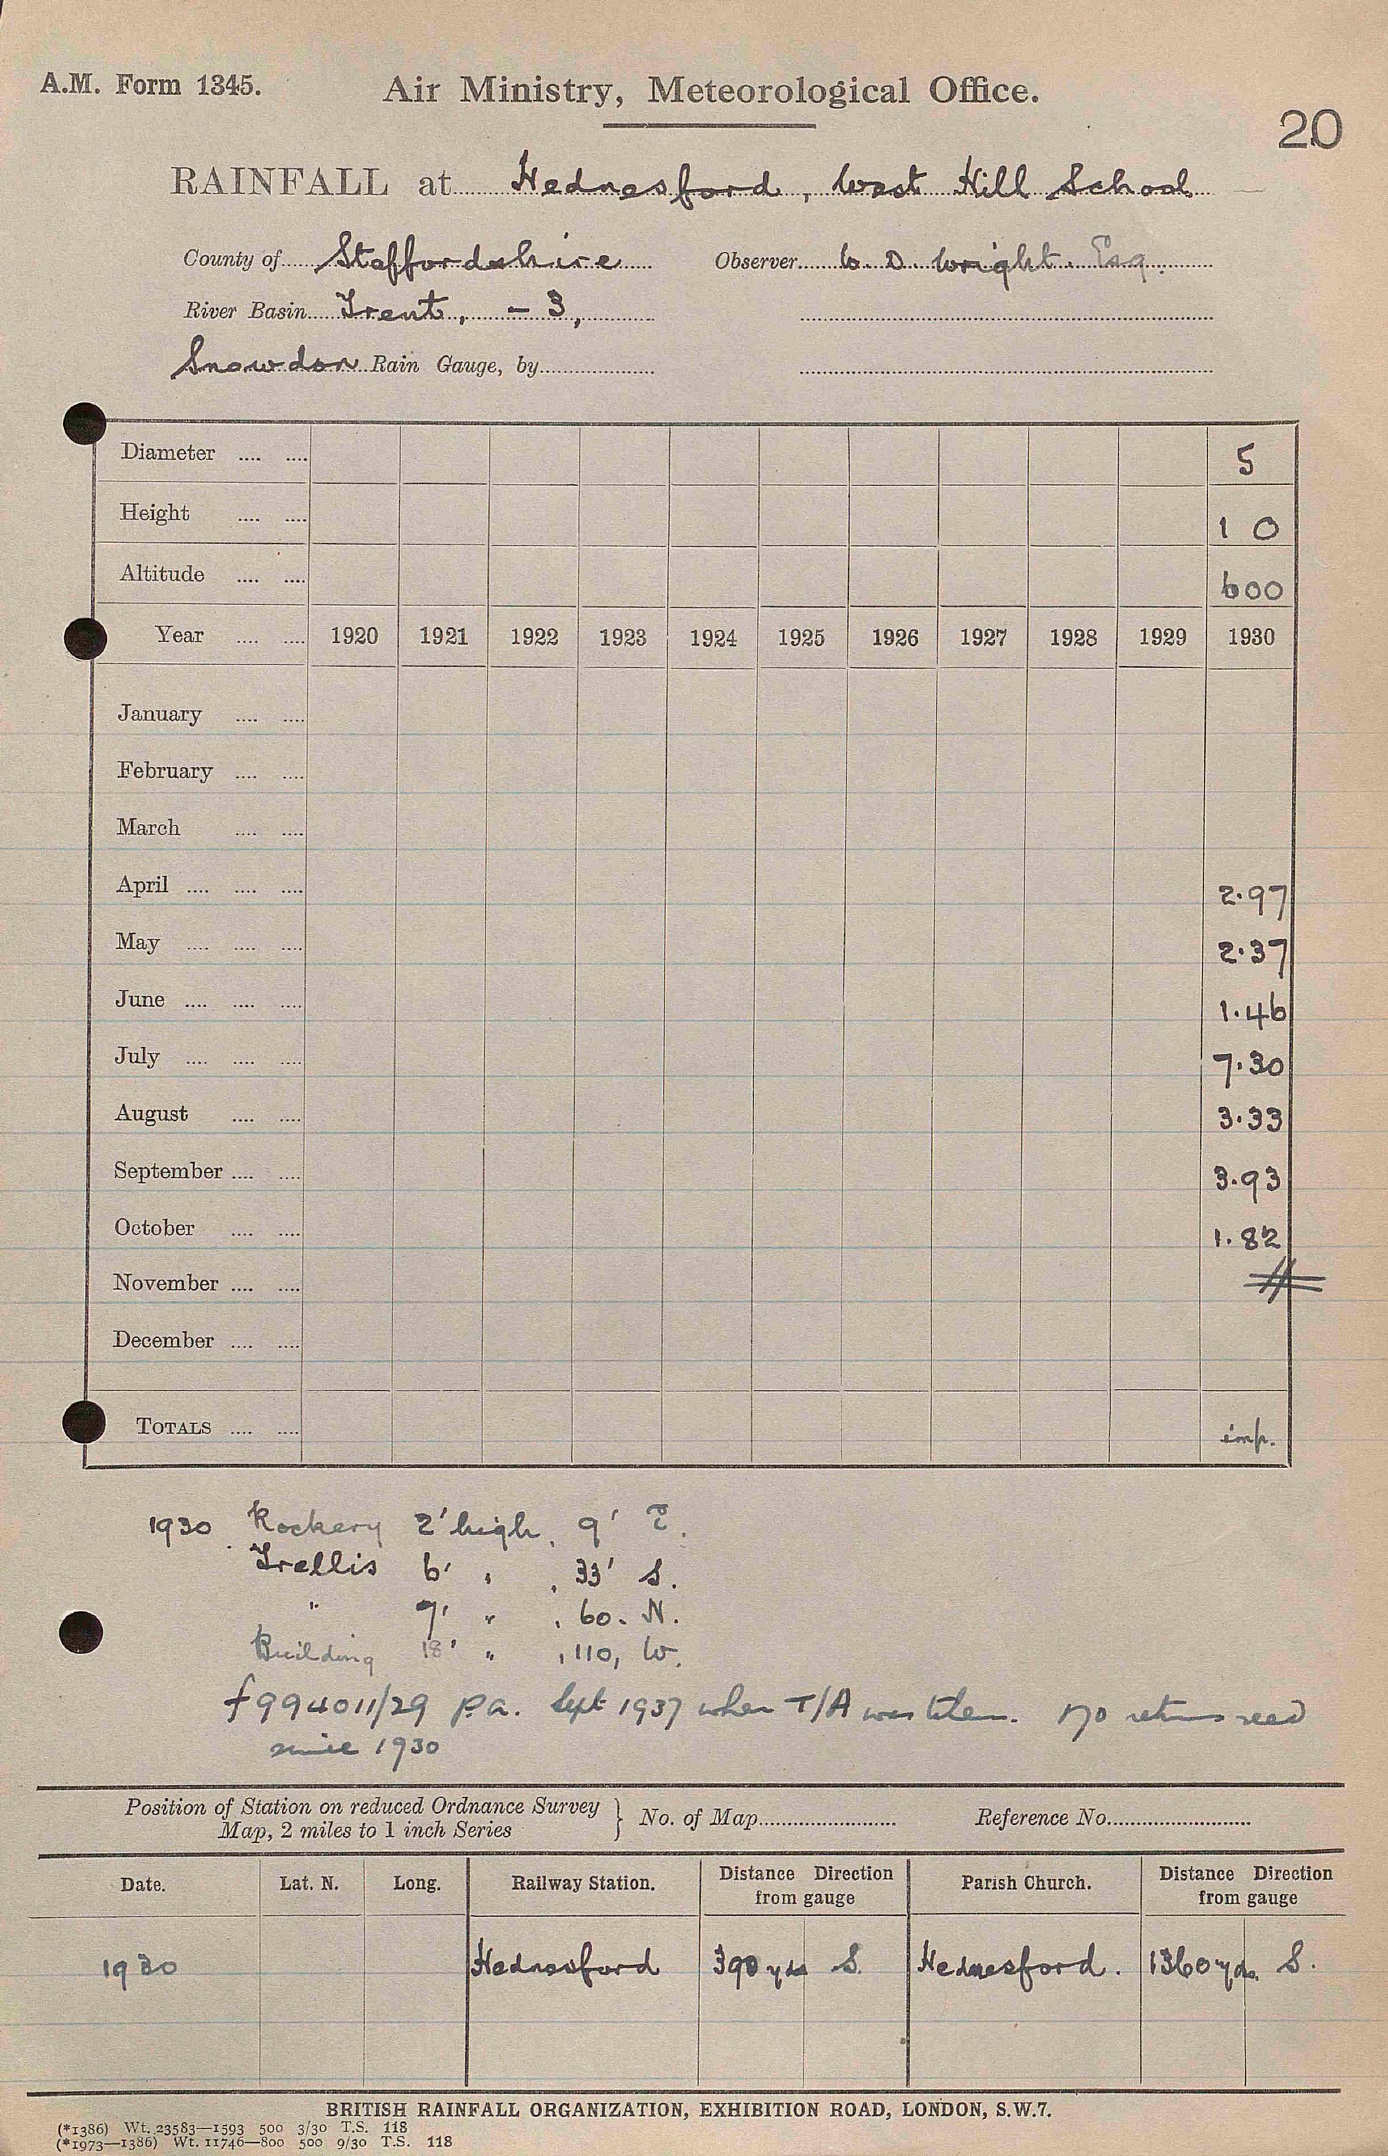 A.M. Form 1345.
Air Ministry, Meteorological Office.
20
RAINFALL at Hednesford, West Hill School
County of Staffordshire Observer W. D. Wright. Esq.
River Basin Trent, - 3,
Snowdon Rain Gauge, by
Diameter 5
Height 1 0
Altitude 600
Year 1920 1921 1922 1923 1924 1925 1926 1927 1928 1929 1930
January
February
March
April 2.97
May 2.37
June 1.46
July 7.30
August 3.33
September 3.93
October 1.82
November
December
TOTALS imp.
1930 Rockery 2' high, 9' E.
Trellis 6' " , 33' S.
" 7' " , 60. N.
Building 18' " , 110, W.
f994011/29 p.a. Sept 1937 when T/A was taken. No returns recd
since 1930
Position of Station on reduced Ordnance Survey
Map, 2 miles to 1 inch Series } No. of Map Reference No.
Date. Lat. N. Long. Railway Station. Distance Direction from gauge Parish Church. Distance Direction from gauge
1930 Hednesford 390 yds S. Hednesford. 1360 yds. S.
BRITISH RAINFALL ORGANIZATION, EXHIBITION ROAD, LONDON, S.W.7.
(*1386) Wt. 23583—1593 500 3/30 T.S. 118
(*1973—1386) Wt. 11746—800 500 9/30 T.S. 118